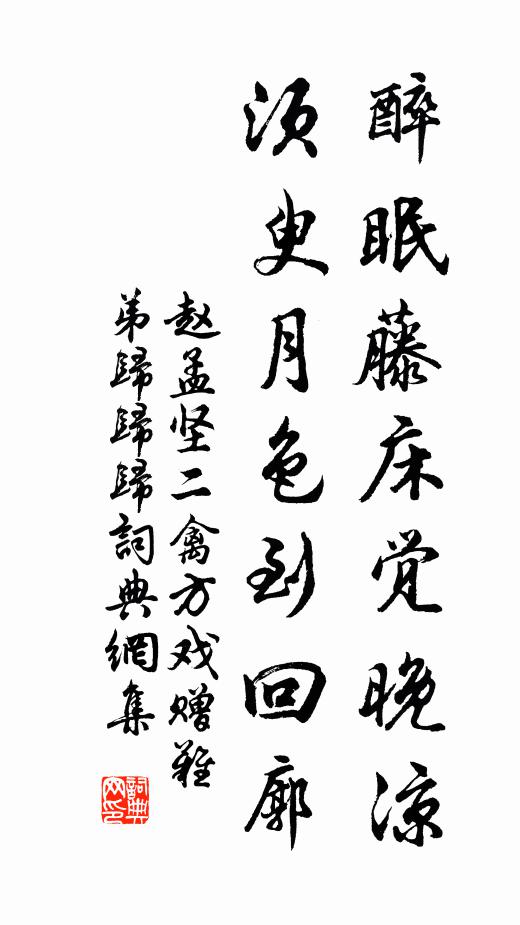 醉眠藤床觉晚凉
须臾月色到回廓
赵孟坚二禽方戏赠难
弟歸歸歸詞典網集
詞典网印